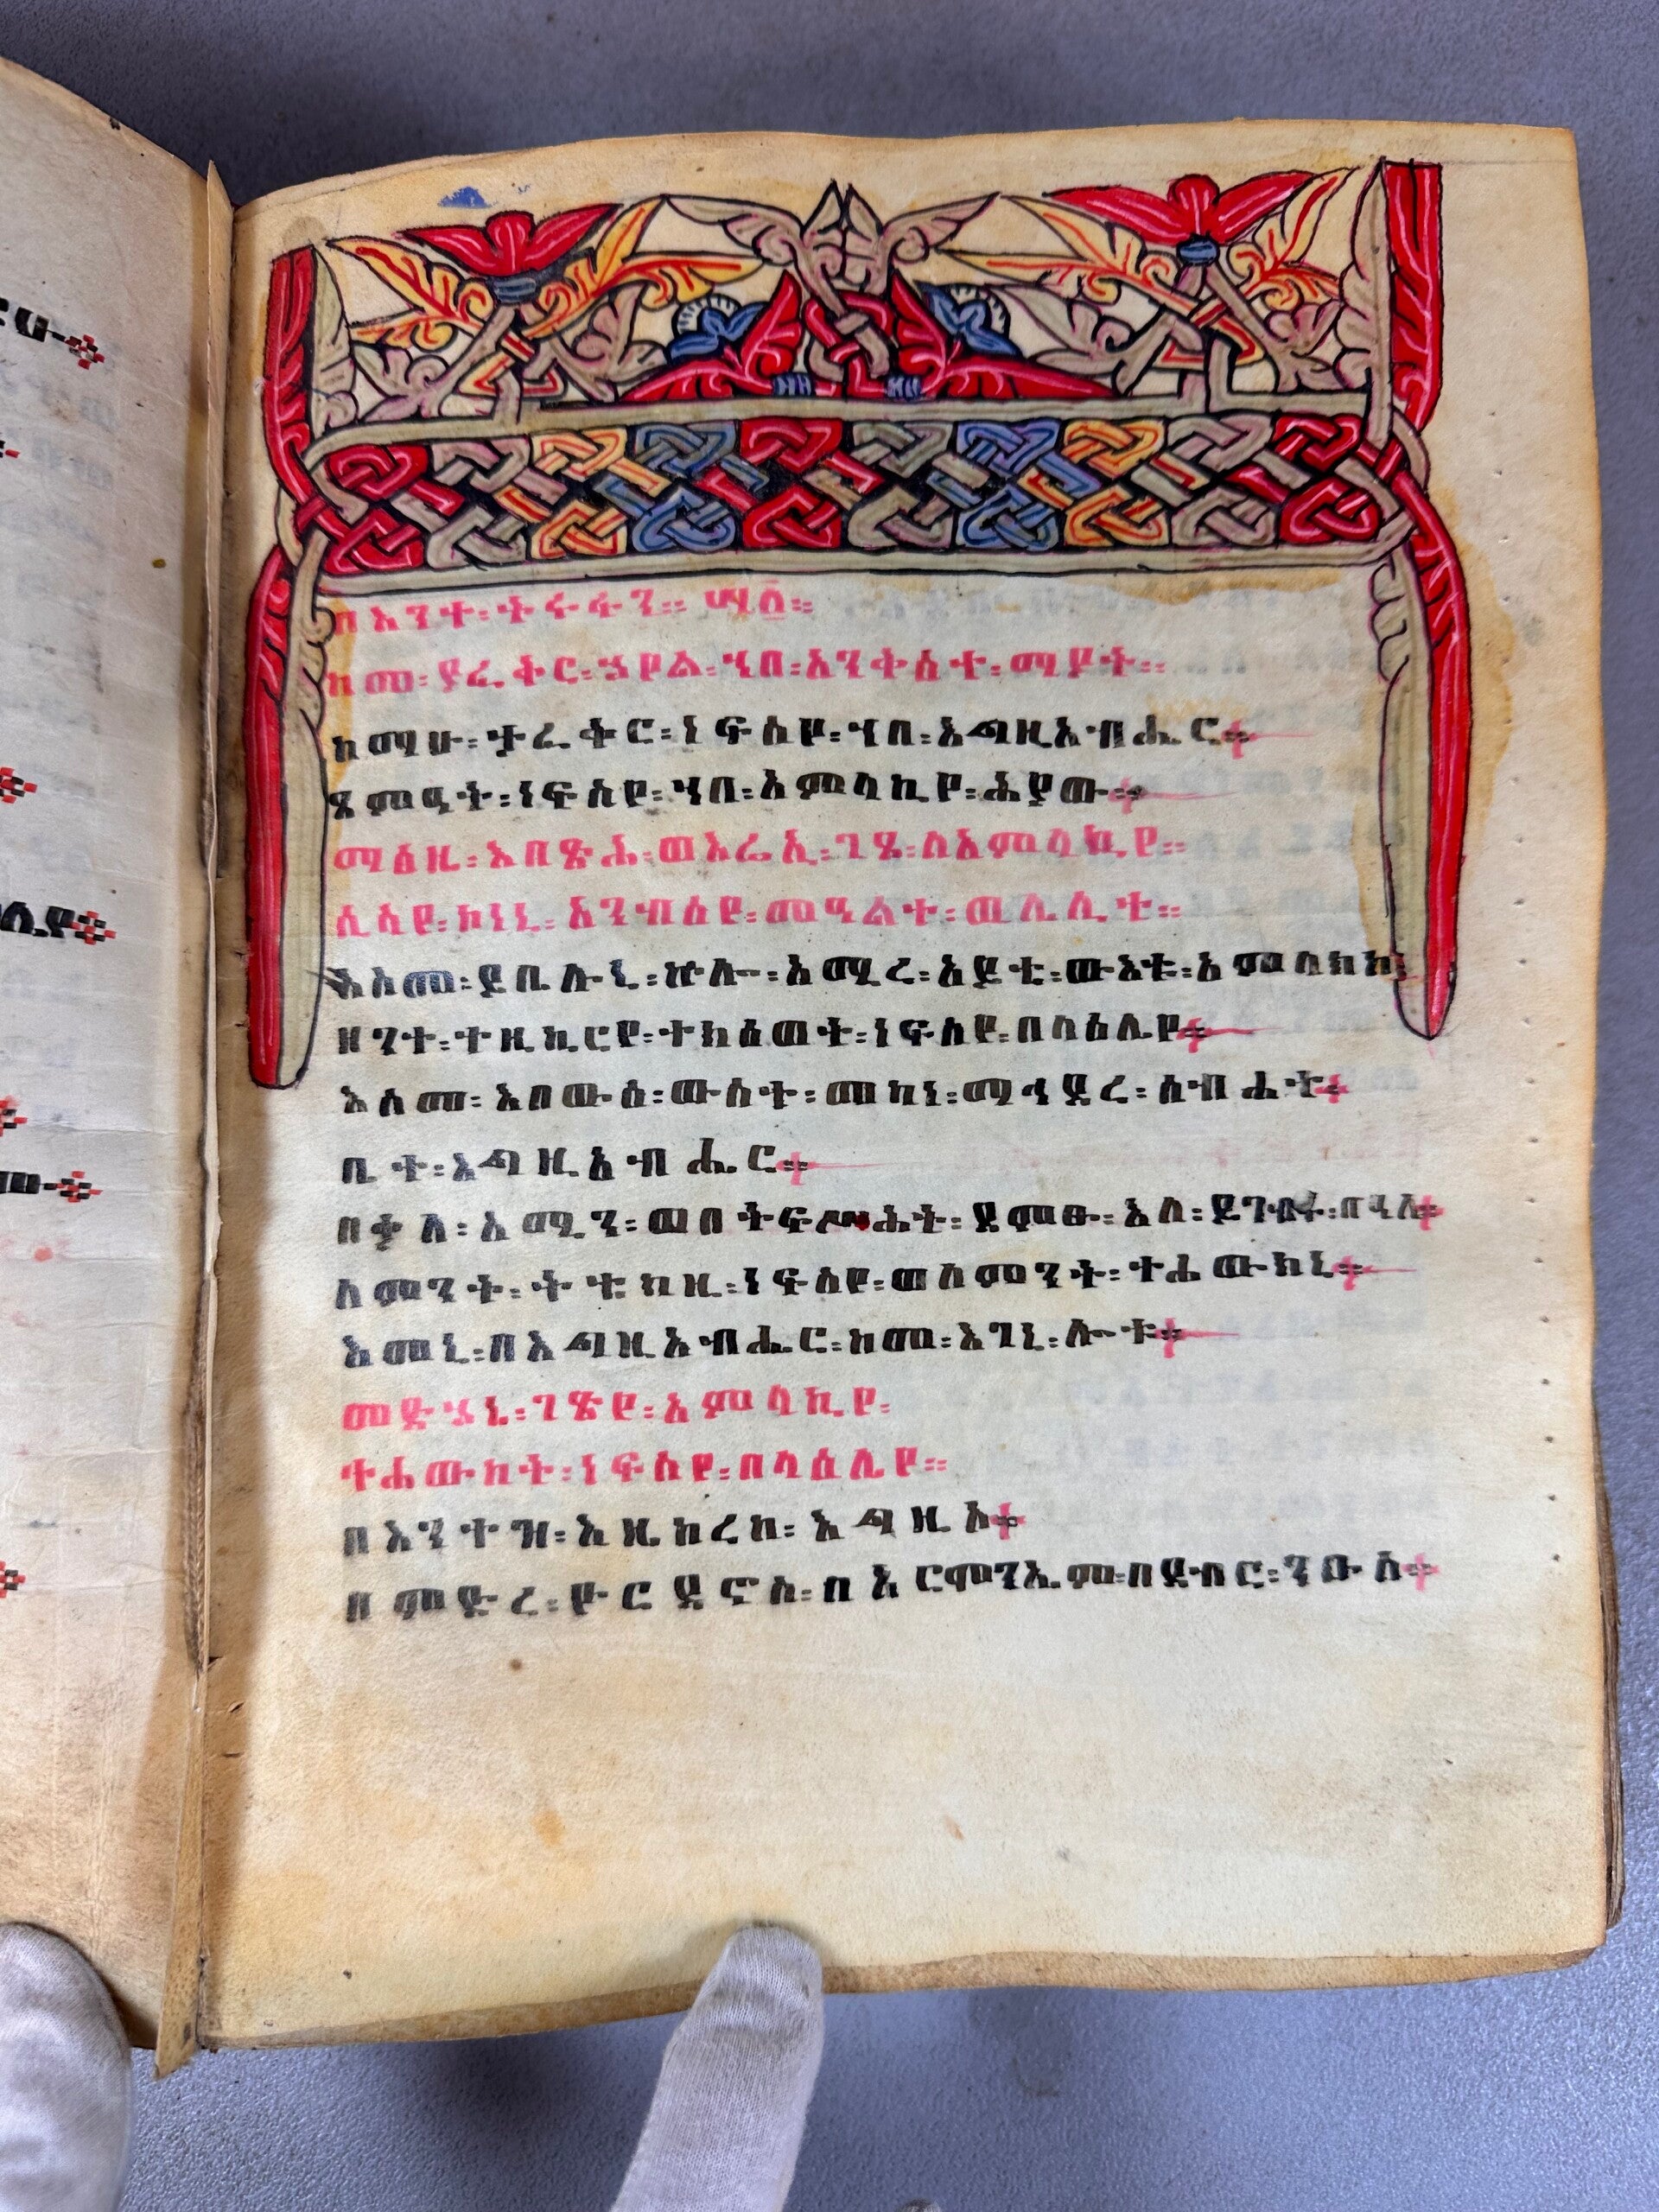 በእንተ፡ትሩፋን። ፵፩።
ከመ፡ያፈቅር፡ኀየል፡ኀበ፡አንቅዕተ፡ማያት።
ከማሁ፡ታፈቅር፡ነፍስየ፡ኀበ፡እግዚአብሔር።
ጸምዐት፡ነፍስየ፡ኀበ፡አምላኪየ፡ሕያው።
ማዕዜ፡እበጽሕ፡ወእሬኢ፡ገጾ፡ለአምላኪየ።
ሲሳየ፡ኮነኒ፡አንብዕየ፡መዓልተ፡ወሌሊተ።
እስመ፡ይቤሉኒ፡ኵሎ፡አሚረ፡አይቴ፡ውእቱ፡አምላክከ፡
ዘንተ፡ተዘኪርየ፡ተክዕወት፡ነፍስየ፡በላዕሌየ።
እስመ፡እበውዕ፡ውስተ፡መካነ፡ማኅደረ፡ስብሐት።
ቤተ፡እግዚአብሔር።
በቃለ፡አሚን፡ወበትፍሥሕት፡ደምፁ፡እለ፡ይገብሩ፡በዓለ።
ለምንት፡ትቴክዚ፡ነፍስየ፡ወለምንት፡ተሐውክኒ።
እመኒ፡በእግዚአብሔር፡ከመ፡እገኒ፡ሎቱ።
መድኀኒ፡ገጽየ፡አምላኪየ፡
ተሐውከት፡ነፍስየ፡በላዕሌየ።
በእንተዝ፡እዜከረከ፡እግዚኦ።
በምድረ፡ዮርዳኖስ፡በአርሞንኤም፡በደብር፡ንዑስ።